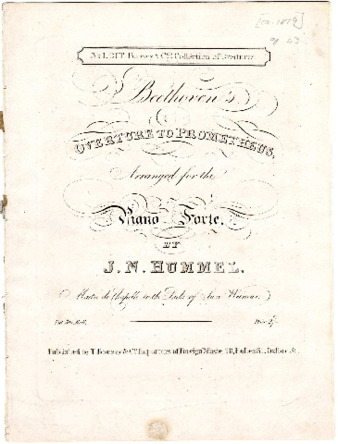 [ca. 1819]
No. 1. of T. Boosey & Co's Collection of Overtures
Beethoven's
OVERTURE TO PROMETHEUS,
Arranged for the
Piano Forte,
BY
J. N. HUMMEL.
Maitre de Chapelle to the Duke of Saxe Weimar.
Ent. Sta. Hall.
Price
Published by T. Boosey & Co. Importers of Foreign Music, 28, Holles St. Oxford St.